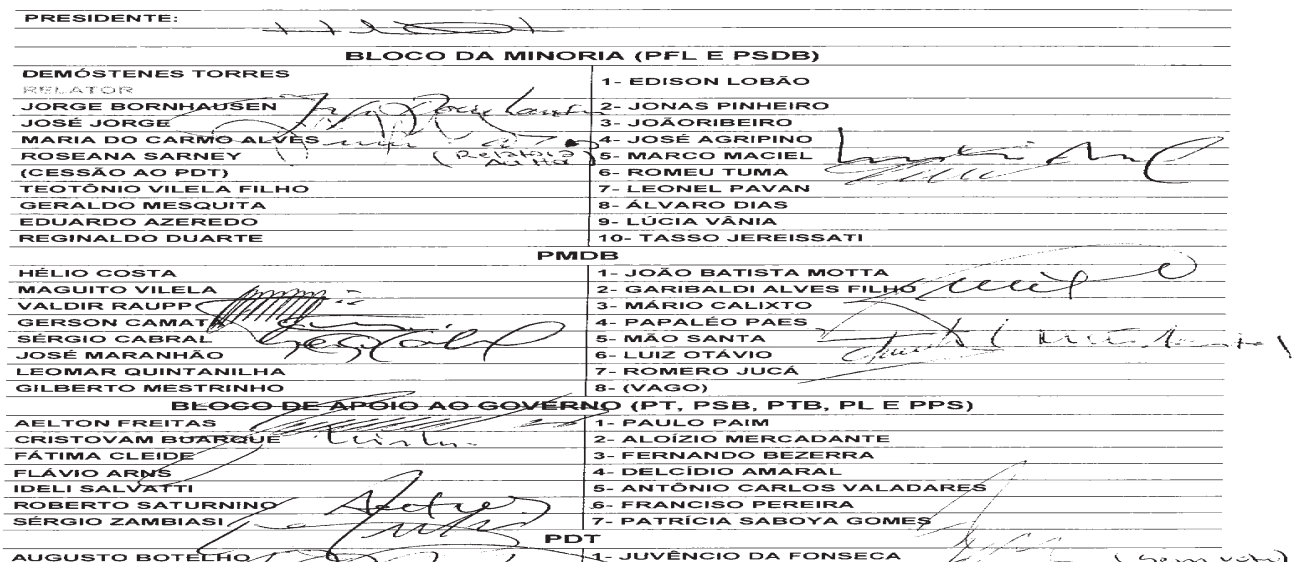 PRESIDENTE:
BLOCO DA MINORIA (PFL E PSDB)
DEMÓSTENES TORRES
RELATOR
1- EDISON LOBÃO
JORGE BORNHAUSEN 2- JONAS PINHEIRO
JOSÉ JORGE 3- JOÃORIBEIRO
MARIA DO CARMO ALVES 4- JOSÉ AGRIPINO
ROSEANA SARNEY 5- MARCO MACIEL
(CESSÃO AO PDT) 6- ROMEU TUMA
TEOTÔNIO VILELA FILHO 7- LEONEL PAVAN
GERALDO MESQUITA 8- ÁLVARO DIAS
EDUARDO AZEREDO 9- LÚCIA VÂNIA
REGINALDO DUARTE 10- TASSO JEREISSATI
PMDB
HÉLIO COSTA 1- JOÃO BATISTA MOTTA
MAGUITO VILELA 2- GARIBALDI ALVES FILHO
VALDIR RAUPP 3- MÁRIO CALIXTO
GERSON CAMAT 4- PAPALÉO PAES
SÉRGIO CABRAL 5- MÃO SANTA
JOSÉ MARANHÃO 6- LUIZ OTÁVIO
LEOMAR QUINTANILHA 7- ROMERO JUCÁ
GILBERTO MESTRINHO 8- (VAGO)
BLOCO DE APOIO AO GOVERNO (PT, PSB, PTB, PL E PPS)
AELTON FREITAS 1- PAULO PAIM
CRISTOVAM BUARQUE 2- ALOÍZIO MERCADANTE
FÁTIMA CLEIDE 3- FERNANDO BEZERRA
FLÁVIO ARNS 4- DELCÍDIO AMARAL
IDELI SALVATTI 5- ANTÔNIO CARLOS VALADARES
ROBERTO SATURNINO 6- FRANCISO PEREIRA
SÉRGIO ZAMBIASI 7- PATRÍCIA SABOYA GOMES
PDT
AUGUSTO BOTELHO 1- JUVÊNCIO DA FONSECA